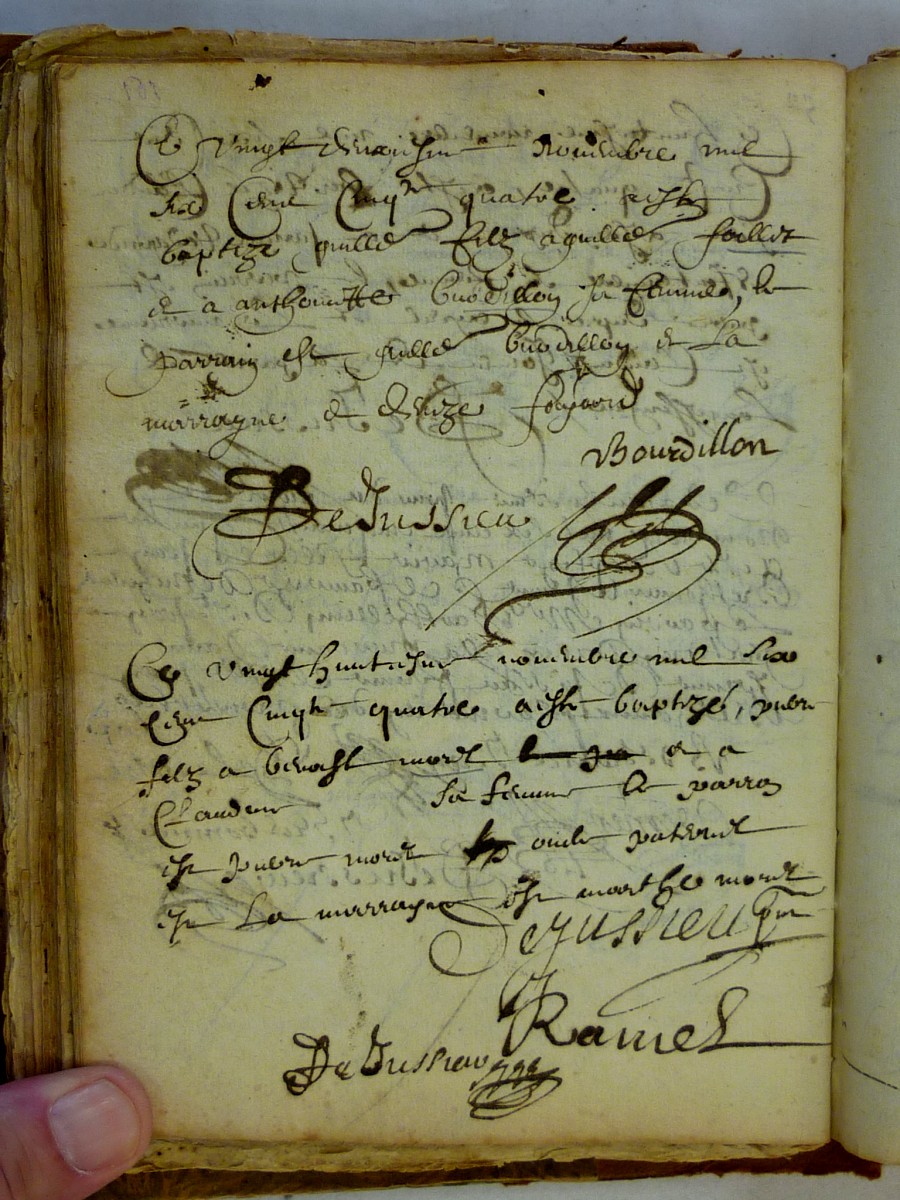 Ce vingt deuxiesme Novembre mil
six Cent Cinq^te quatre a esté
baptizé guille filz a guille
& a anthoinette bourdillon sa femme, le
parrain est guille bourdillon & La
marrayne & denize foyard
Bourdillon
DeJussieu
Ce vingt huitiesme novembre mil six
Cent Cinq^te quatre a esté baptizé, pierre
filz a benoist morel & a
Claudine sa femme le parrain
est pierre morel oncle paternel
est La marrayne est marthe morel
DeJussieu
Ramel
DeJussieu